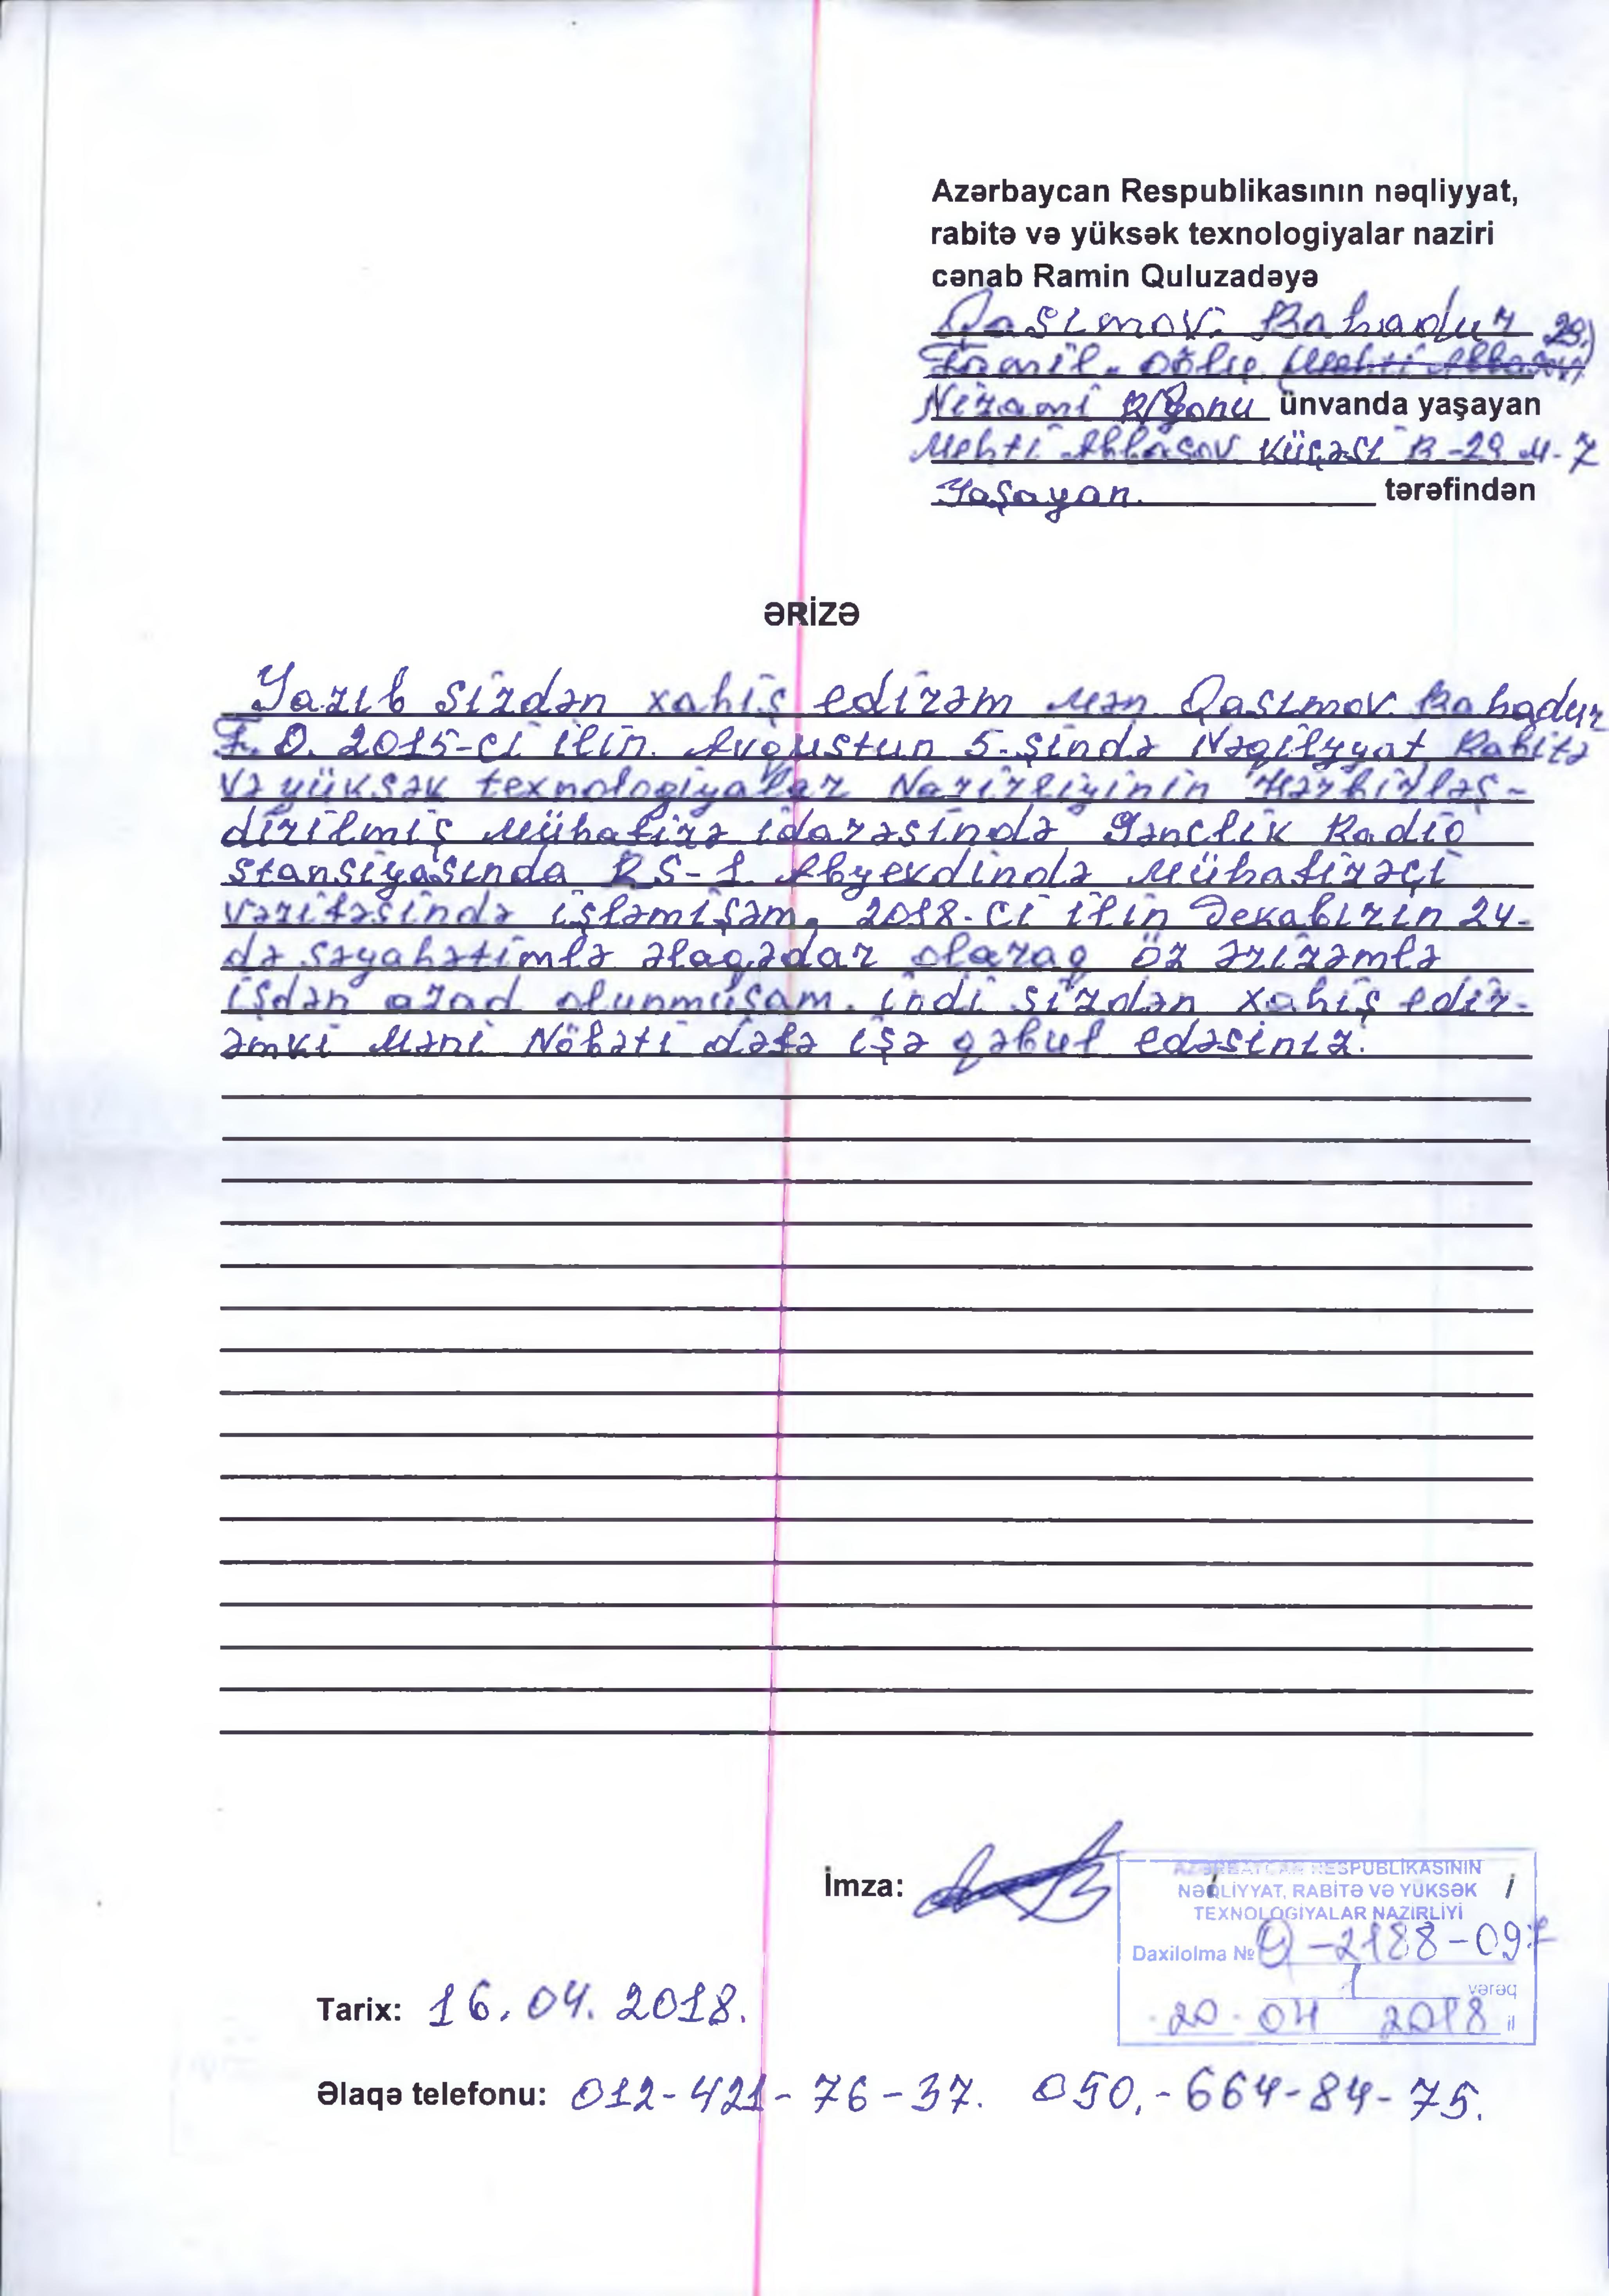 Azərbaycan Respublikasının nəqliyyat,
rabitə və yüksək texnologiyalar naziri
cənab Ramin Quluzadəyə
Qasımov. Bahadur 29.)
Famil. oğlu Mehti Abbasov
Nizami R/Yonu ünvanda yaşayan
Mehti Abbasov Küçəsi B-29 M-7
Yaşayan. tərəfindən
ƏRİZƏ
Yazıb Sizdən xahiş edirəm Mən Qasımov. Bahadur
F. O. 2015-ci ilin. Avqustun 5-şində Nəqilyyat Rabitə
Və yüksək texnologiyalar Nazirliyinin Hərbirləş-
dirilmiş Mühafizə idarəsində Gənclik Radio
stansiyasında RS-1 Abyekdində Mühafizəçi
Vəzifəsində işləmişəm, 2018-ci ilin Dekabırın 24-
də səyahətimlə əlaqədar olaraq öz ərizəmlə
işdən azad olunmuşam. indi sizdən xahiş edir-
əmki Məni Nöbəti dəfə işə qəbul edəsiniz.
İmza:
AZƏRBAYCAN RESPUBLİKASININ
NƏQLİYYAT, RABİTƏ VƏ YÜKSƏK
TEXNOLOGİYALAR NAZİRLİYİ
Daxilolma № Q-2188-097
1 vərəq
20. 04 2018 il
Tarix: 16. 04. 2018.
Əlaqə telefonu: 012-421-76-37. 050.-664-84-75.